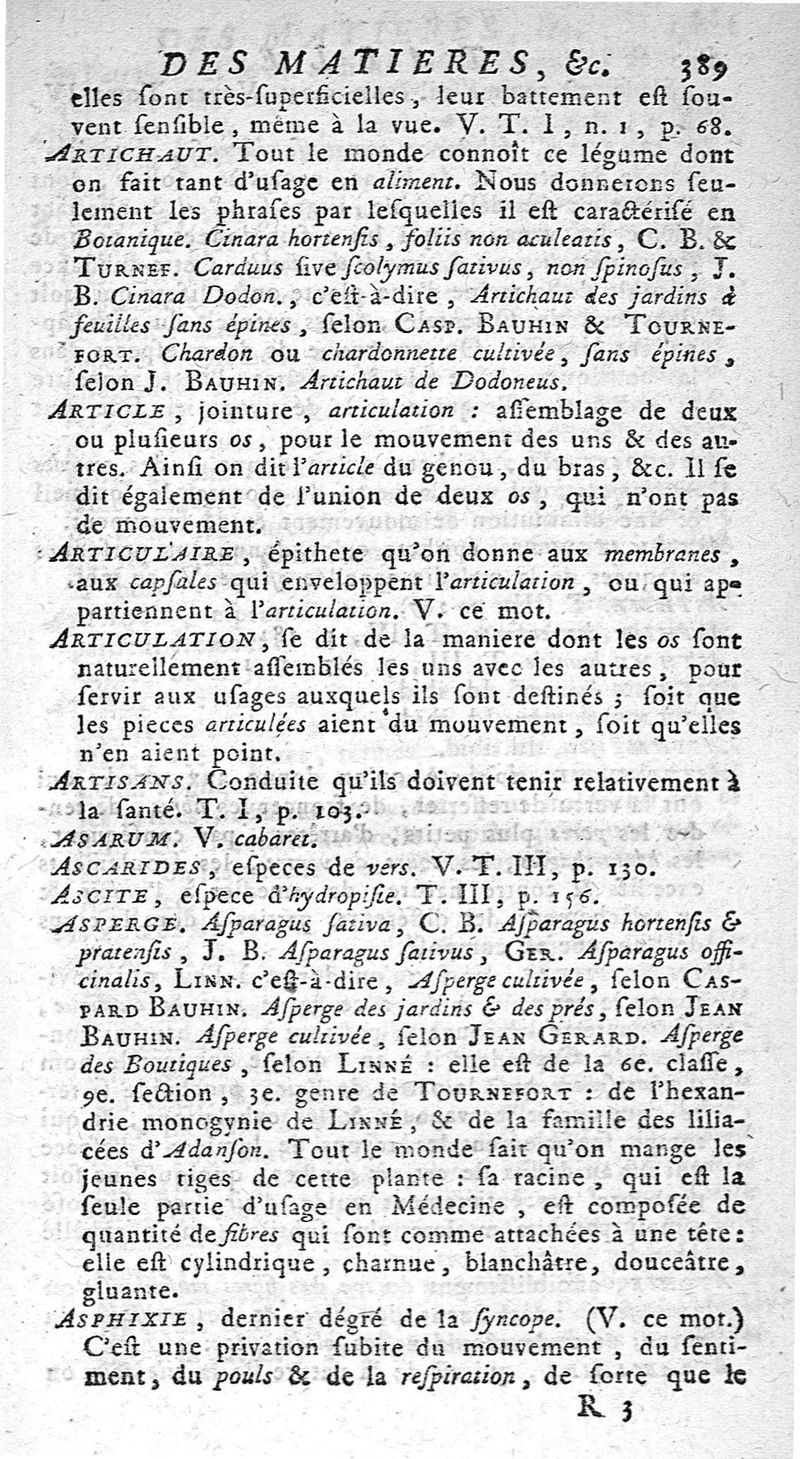 DES MATIERES, &c. 389
elles ſont très-ſuperficielles, leur battement eſt ſou-
vent ſenſible, même à la vue. V. T. I, n. 1, p. 68.
ARTICHAUT. Tout le monde connoît ce légume dont
on fait tant d'uſage en aliment. Nous donnerons ſeu-
lement les phraſes par leſquelles il eſt caractériſé en
Botanique. Cinara hortenſis, foliis non aculeatis, C. B. &
TURNEF. Carduus ſive ſcolymus ſativus, non ſpinoſus, J.
B. Cinara Dodon., c'eſt-à-dire, Artichaut des jardins à
feuilles ſans épines, ſelon CASP. BAUHIN & TOURNE-
FORT. Chardon ou chardonnette cultivée, ſans épines,
ſelon J. BAUHIN. Artichaut de Dodoneus.
ARTICLE, jointure, articulation : aſſemblage de deux
ou pluſieurs os, pour le mouvement des uns & des au-
tres. Ainſi on dit l'article du genou, du bras, &c. Il ſe
dit également de l'union de deux os, qui n'ont pas
de mouvement.
ARTICULAIRE, épithete qu'on donne aux membranes,
aux capſales qui enveloppent l'articulation, ou qui ap-
partiennent à l'articulation. V. ce mot.
ARTICULATION, ſe dit de la maniere dont les os ſont
naturellement aſſemblés les uns avec les autres, pour
ſervir aux uſages auxquels ils ſont deſtinés ; ſoit que
les pieces articulées aient du mouvement, ſoit qu'elles
n'en aient point.
ARTISANS. Conduite qu'ils doivent tenir relativement à
la ſanté. T. I, p. 103.
ASARUM. V. cabaret.
ASCARIDES, eſpeces de vers. V. T. III, p. 130.
ASCITE, eſpece d'hydropiſie. T. III, p. 156.
ASPERGE. Aſparagus ſativa, C. B. Aſparagus hortenſis &
pratenſis, J. B. Aſparagus ſativus, GER. Aſparagus offi-
cinalis, LINN. c'eſt-à-dire, Aſperge cultivée, ſelon CAS-
PARD BAUHIN. Aſperge des jardins & des prés, ſelon JEAN
BAUHIN. Aſperge cultivée, ſelon JEAN GERARD. Aſperge
des Boutiques, ſelon LINNÉ : elle eſt de la 6e. claſſe,
9e. ſection, 3e. genre de TOURNEFORT : de l'hexan-
drie monogynie de LINNÉ, & de la famille des lilia-
cées d'Adanſon. Tout le monde ſait qu'on mange les
jeunes tiges de cette plante : ſa racine, qui eſt la
ſeule partie d'uſage en Médecine, eſt compoſée de
quantité de fibres qui ſont comme attachées à une tête :
elle eſt cylindrique, charnue, blanchâtre, douceâtre,
gluante.
ASPHIXIE, dernier dégré de la ſyncope. (V. ce mot.)
C'eſt une privation ſubite du mouvement, du ſenti-
ment, du pouls & de la reſpiration, de ſorte que le
R 3